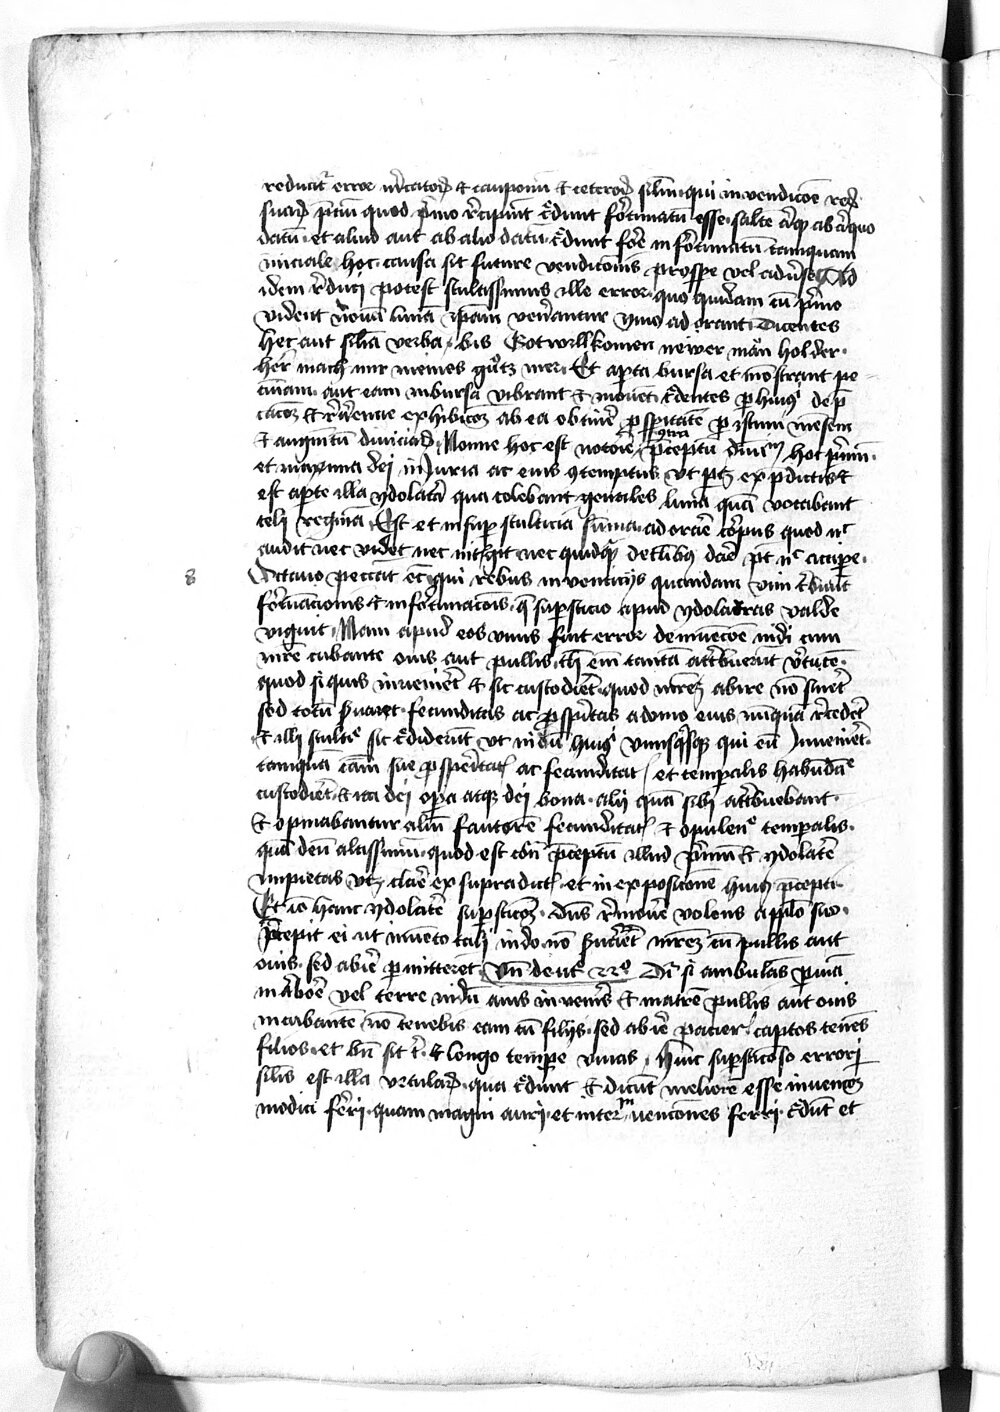 reducitur error mercatorum et cauponum et ceterorum similium qui in vendicione rerum
suarum precium quod primo recipiunt credunt fortunatum esse salte aliquid ab aliquo
datum et aliud aut ab alio datum credunt fore infortunatum tamquam
iniciale hoc causa sit future vendicionis prospere vel adverse
idem reduci potest stultissimus ille error quo quidam cum primo
vident novam lunam ipsam venerantur ymo adorant Dicentes
hec aut similia verba bis Gotwillkomen newer man holder
her mach mir meines gutz mer Et aperta bursa et monstrant pe
cuniam aut eam in bursa vibrant et movent credentes per huius depre
cacionem et reverencie exhibicionem ab ea obtinere prosperitatem per istum mensem
et augmentum diviciarum Nonne hoc est notorie contra preceptum divinum hoc primum
et maxima dei iniuria ac eius contemptus ut patet ex predictis Et
est aperte illa ydolatria qua colebant gentiles lunam quam vocabant
celi reginam Est et insuper stulticia summa adorare corpus quod nec
audit nec videt nec intelligit nec quidquam de talibus dare potest nec accipere
8 Octavo peccant eciam qui rebus inventiciis quamdam vim tribuunt
fortunacionis et infortunacionis que supersticio apud ydolatras valde
viguit Nam apud eos unus fuit error de invencione nidi cum
matre cubante ovis aut pullis cui enim tantam attribuerunt virtutem
quod si quis inveniret et sic custodiret quod matrem abire non sineret
sed totum servaret fecunditas ac prosperitas a domo eius nunquam recederet
Et illi stulti sic crediderunt ut nidum huius unusquisque qui eum Inveniret
tamquam causam sue prosperitatis ac fecunditatis et temporalis habundancie
custodiret et ita dei opera atque dei bona alii quam sibi attribuebant
Et opinabantur alium fautorem fecunditatis et opulencie temporalis
quam deum altissimum quod est contra preceptum illud primum et ydolatrie
impietas ut claret ex supradictis et in exposicione huius precepti
Et ideo hanc ydolatrie supersticionem dominus removere volens a populo suo
precepit ei ut invento tali nido non servaret matrem cum pullis aut
ovis sed abire permitteret Unde deutro 22o Dicitur si ambulans per viam
in arbore vel terre nidum avis inveneris et matrem pullis aut ovis
incubantem non tenebis eam cum filiis sed abire pacieris captos tenens
filios et bene sit tibi et longo tempore vivas Huic supersticioso errori
similis est illa vetularum qua credunt et dicunt meliorem esse invencionem
modici ferri quam magni auri et inter invenciones ferri credunt et